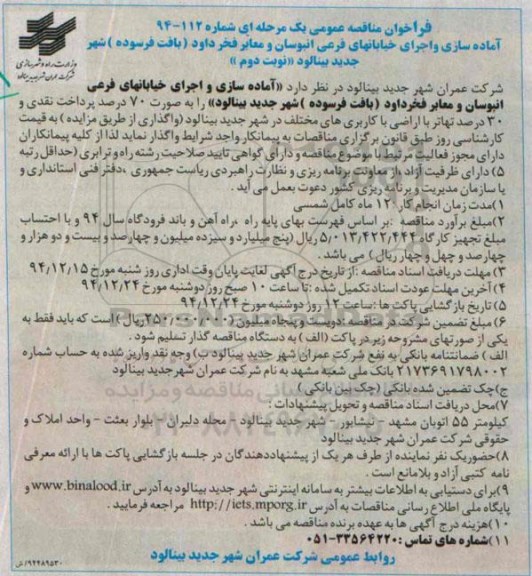 فراخوان مناقصه عمومی یک مرحله ای شماره ۱۱۲-۹۴
آماده سازی واجرای خیابانهای فرعی انبوسان و معابر فخر داود (بافت فرسوده) شهر
جدید بینالود «نوبت دوم»
وزارت راه و شهرسازی
شرکت عمران شهر جدید بینالود
شرکت عمران شهر جدید بینالود در نظر دارد «آماده سازی و اجرای خیابانهای فرعی
انبوسان و معابر فخرداود (بافت فرسوده) شهر جدید بینالود» را به صورت ۷۰ درصد پرداخت نقدی و
۳۰ درصد تهاتر با اراضی با کاربری های مختلف در شهر جدید بینالود (واگذاری از طریق مزایده) به قیمت
کارشناسی روز طبق قانون برگزاری مناقصات به پیمانکار واجد شرایط واگذار نماید لذا از کلیه پیمانکاران
دارای مجوز فعالیت مرتبط با موضوع مناقصه و دارای گواهی تایید صلاحیت رشته راه و ترابری (حداقل رتبه
۵) دارای ظرفیت آزاد ،از معاونت برنامه ریزی و نظارت راهبردی ریاست جمهوری ،دفتر فنی استانداری و
یا سازمان مدیریت و برنامه ریزی کشور دعوت بعمل می آید .
۱)مدت زمان انجام کار: ۱۲ ماه کامل شمسی
۲)مبلغ برآورد مناقصه :بر اساس فهرست بهای پایه راه ،راه آهن و باند فرودگاه سال ۹۴ و با احتساب
مبلغ تجهیز کارگاه ۵,۰۱۳,۴۲۲,۴۰۴ ریال (پنج میلیارد و سیزده میلیون و چهارصد و بیست و دو هزار و
چهارصد و چهل و چهار ریال) می باشد .
۳) مهلت دریافت اسناد مناقصه :از تاریخ درج آگهی لغایت پایان وقت اداری روز شنبه مورخ ۹۴/۱۲/۱۵
۴) آخرین مهلت عودت اسناد تکمیل شده :تا ساعت ۱۰ صبح روز دوشنبه مورخ ۹۴/۱۲/۲۴
۵) تاریخ بازگشایی پاکت ها :ساعت ۱۲ روز دوشنبه مورخ ۹۴/۱۲/۲۴
۶) مبلغ تضمین شرکت در مناقصه :دویست و پنجاه میلیون (۲۵۰,۰۰۰,۰۰۰ ریال) است که باید فقط به
یکی از صورتهای مشروحه زیر در پاکت (الف) به دستگاه مناقصه گذار تسلیم شود .
الف) ضمانتنامه بانکی به نفع شرکت عمران شهر جدید بینالود ب) وجه نقد واریز شده به حساب شماره
۲۱۷۳۶۹۱۷۹۸۰۰۲ بانک ملی شعبه مشهد به نام شرکت عمران شهر جدید بینالود
ج)چک تضمین شده بانکی (چک بین بانکی)
۷)محل دریافت اسناد مناقصه و تحویل پیشنهادات :
کیلومتر ۵۵ اتوبان مشهد - نیشابور - شهر جدید بینالود - محله دلیران - بلوار بعثت - واحد املاک و
حقوقی شرکت عمران شهر جدید بینالود
۸)حضور یک نفر نماینده از طرف هر یک از پیشنهاددهندگان در جلسه بازگشایی پاکت ها با ارائه معرفی
نامه کتبی آزاد و بلامانع است .
۹)برای دستیابی به اطلاعات بیشتر به سامانه اینترنتی شهر جدید بینالود به آدرس www.binalood.ir و
پایگاه ملی اطلاع رسانی مناقصات به آدرس http://iets.mporg.ir مراجعه فرمایید .
۱۰)هزینه درج آگهی ها به عهده برنده مناقصه می باشد .
۱۱)شماره های تماس: ۳۳۵۶۴۲۲۰-۰۵۱
روابط عمومی شرکت عمران شهر جدید بینالود
۹۴۴۸۹۵۳۰/ش